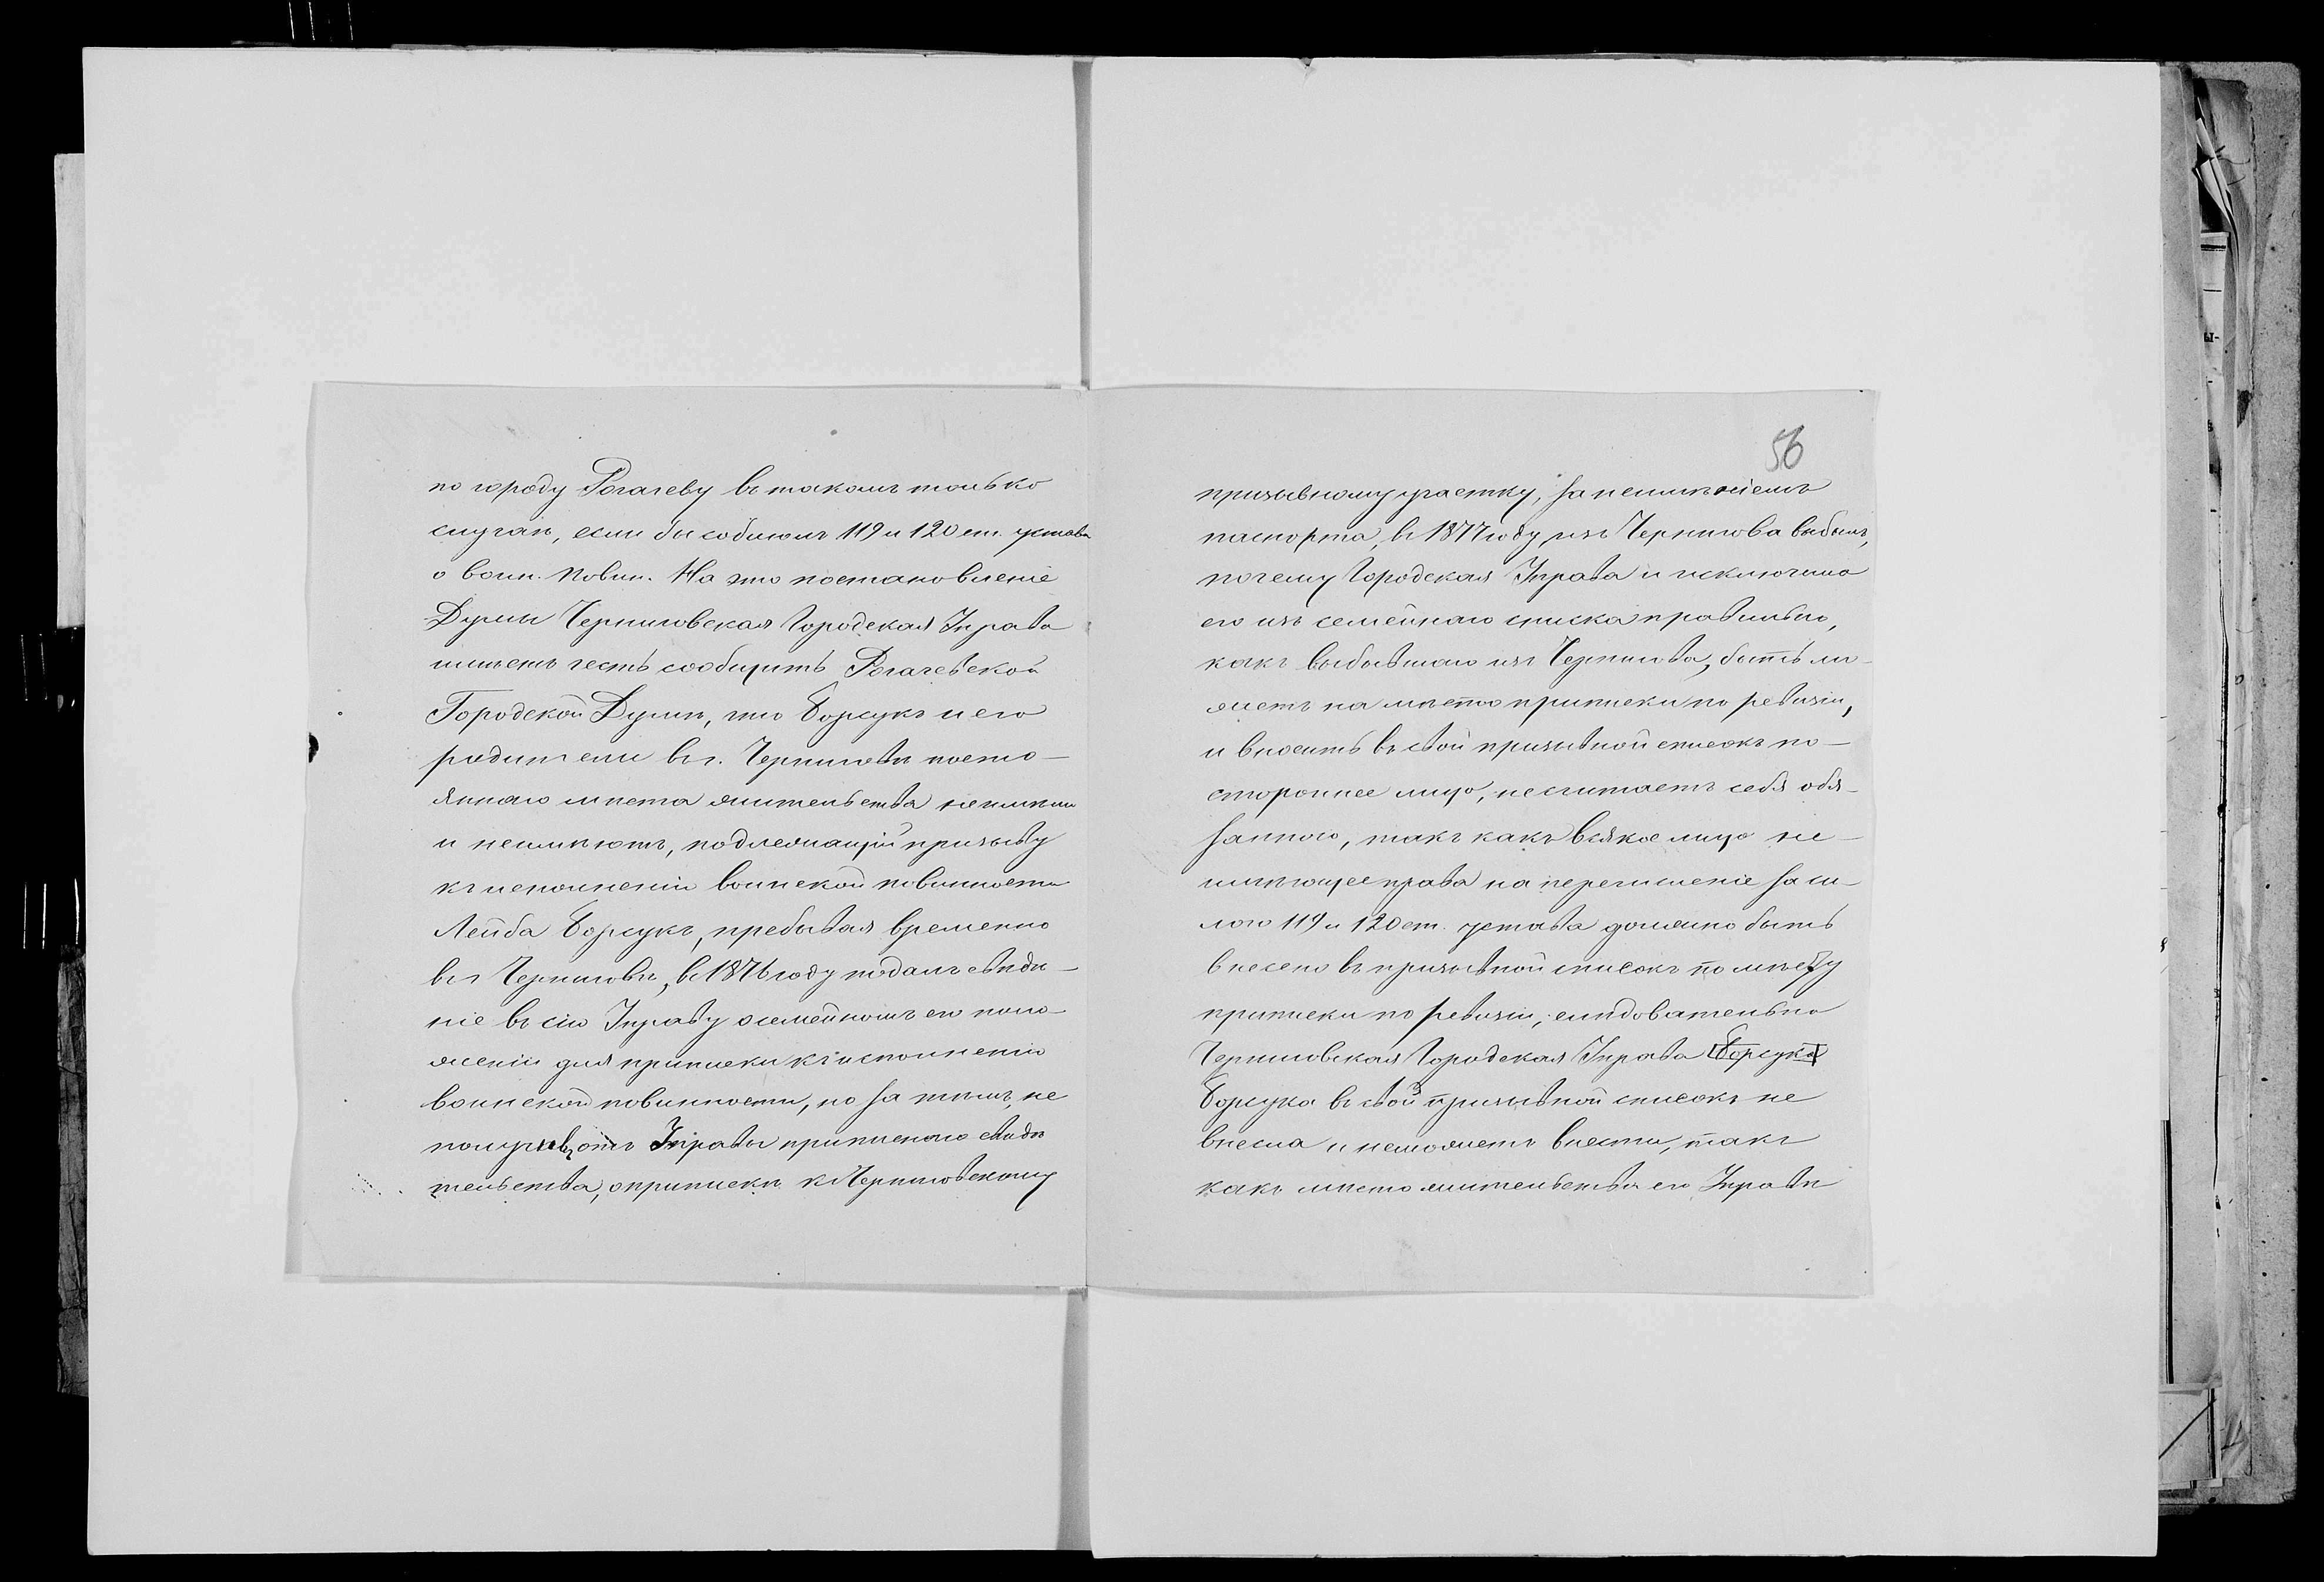 по городу Рогачеву въ такомъ только
случаѣ, если бы соблюлъ 119 и 120 ст. устава
о воин. повин. На это постановленіе
Думы Черниговская Городская Управа
имѣетъ честь сообщить Рогачевской
Городской Думѣ, что Борсукъ и его
родители въ г. Черниговѣ посто-
яннаго мѣста жительства не имѣли
и неимѣютъ, подлежащій призыву
къ исполненію воинской повинности
Лейба Борсукъ, пребывая временно
въ г. Черниговѣ, въ 1876 году подалъ свѣдѣ-
ніе въ сію Управу о семейномъ его поло-
женіи для приписки къ исполненію
воинской повинности, но за тѣмъ, не
получивъ отъ Управы приписнаго свидѣ
тельства, о припискѣ къ Черниговскому
56
призывному участку, за неимѣніемъ
паспорта, въ 1877 году изъ Чернигова выбылъ,
почему Городская Управа и исключила
его изъ семейнаго списка правильно,
какъ выбывшаго изъ Чернигова, быть мо-
жетъ на мѣсто приписки по ревизіи,
и вносить въ свой призывной списокъ по-
стороннее лицо, несчитаетъ себя обя-
занною, такъ какъ всякое лицо не-
имѣющее права на перечисленіе за си-
лою 119 и 120 ст. устава должно быть
внесено въ призывной списокъ по мѣсту
приписки по ревизіи, слѣдовательно
Черниговская Городская Управа Борсука
Борсука въ свой призывной списокъ не
внесла и неможетъ внести, такъ
какъ мѣсто жительства его Управѣ